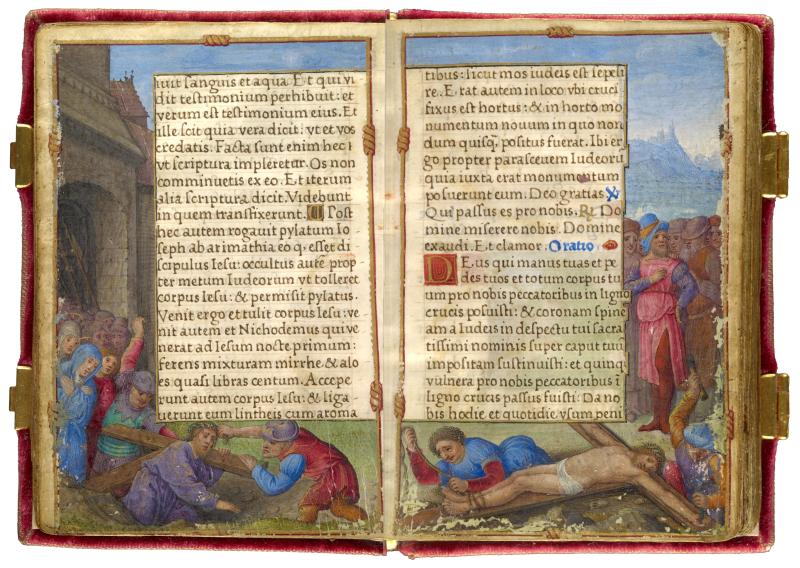 iuit sanguis et aqua. Et qui vi
dit testimonium perhibuit: et
verum est testimonium eius. Et
ille scit quia vera dicit: vt et vos
credatis. Facta sunt enim hec i
vt scriptura impleretur. Os non
comminuetis ex eo. Et iterum
alia scriptura dicit. Videbunt
in quem transfixerunt. ¶ Post
hec autem rogauit pylatum Io
seph ab arimathia eo q̨ esset di
scipulus Iesu: occultus autē prop
ter metum Iudeorum vt tolleret
corpus Iesu: & permisit pylatus.
Venit ergo et tulit corpus Iesu: ve
nit autem et Nichodemus qui ve
nerat ad Iesum nocte primum:
ferens mixturam mirrhe & alo
es quasi libras centum. Accepe
runt autem corpus Iesu: & liga
uerunt eum lintheis cum aroma
tibus: sicut mos iudeis est sepeli
re. Erat autem in loco vbi cruci
fixus est hortus: & in horto mo
numentum nouum in quo non
dum quisq̨ positus fuerat. Ibi er
go propter parasceuem Iudeorū
quia iuxta erat monumentum
posuerunt eum. Deo gratias. ℣
Qui passus es pro nobis. ℟ Do
mine miserere nobis. Domine
exaudi. Et clamor. Oratio
DEus qui manus tuas et pe
des tuos et totum corpus tu
um pro nobis peccatoribus in ligno
crucis posuisti: & coronam spine
am a Iudeis in despectu tui sacra
tissimi nominis super caput tuū
impositam sustinuisti: et quinq̨
vulnera pro nobis peccatoribus ī
ligno crucis passus fuisti: Da no
bis hodie et quotidie vsum peni